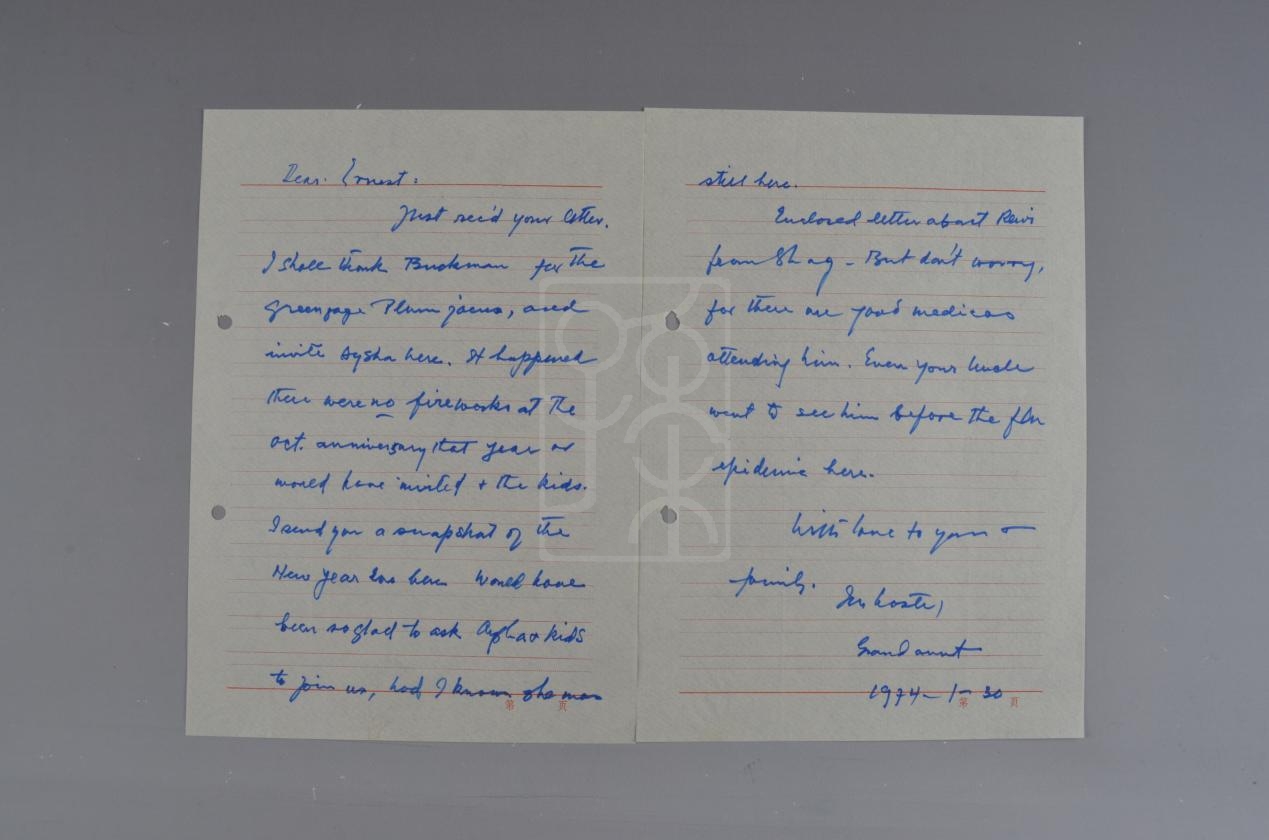 Dear Ernest:
Just rec'd your letter.
I shall thank Buckman for the
greengage Plum , and
invite Aysha here. It happened
there were no fireworks at the
Oct. anniversary that year or
would have invited + the kids.
I send you a snapshot of the
New Year here Would have
been so glad to ask Aysha + kids
to join us, had I known she was
第 页
still here.
Enclosed letter about Rewi
from Shag - But don't worry,
for there are good medicos
attending him. Even your Uncle
went to see him before the flu
epidemic here.
With love to you +
family.
In haste,
Grand aunt
1974-1-30
第 页